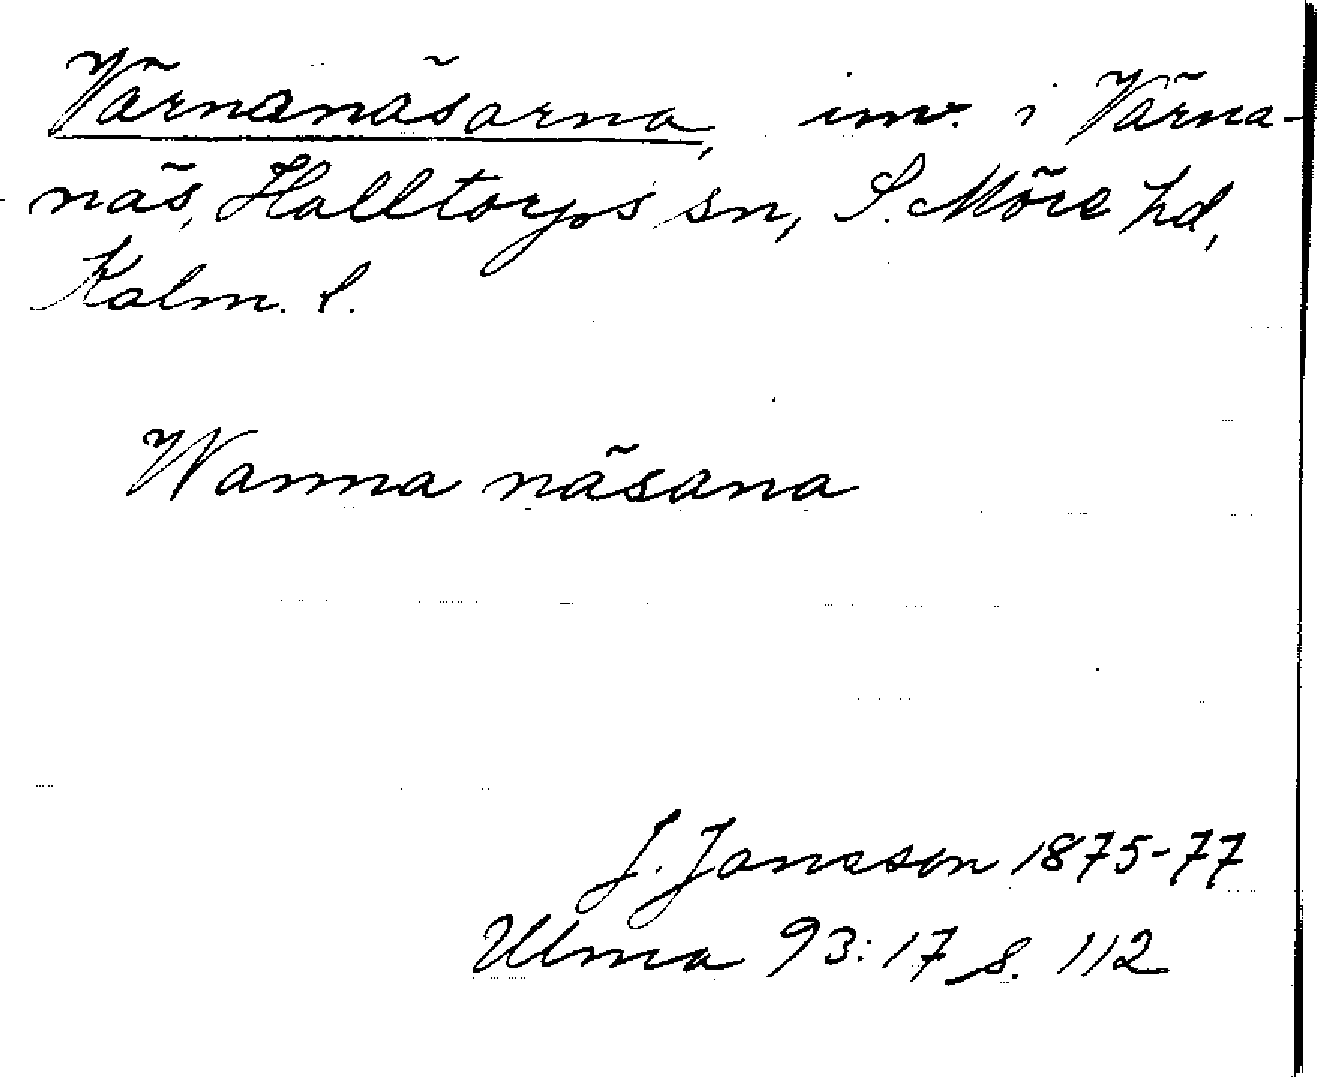 Värnanäsarna, inv. i Värna-
näs, Halltorps sn, S. Möre hd,
Kalm. l.
Wanna näsana
J. Jonsson 1875-77
Ulma 93:17 s. 112